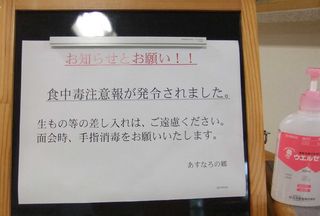 お知らせとお願い！！
食中毒注意報が発令されました。
生もの等の差し入れは、ご遠慮ください。
面会時、手指消毒をお願いいたします。
あすなろの郷
ウエルセ